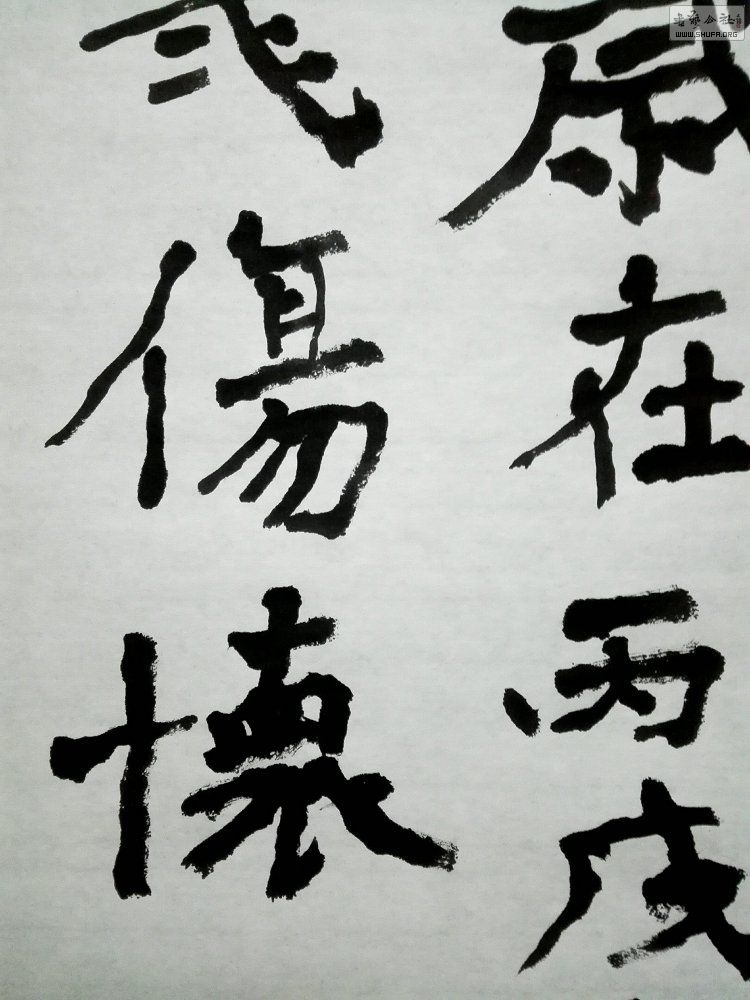 在丙戌
傷懷
书艺公社
WWW.SHUFA.ORG